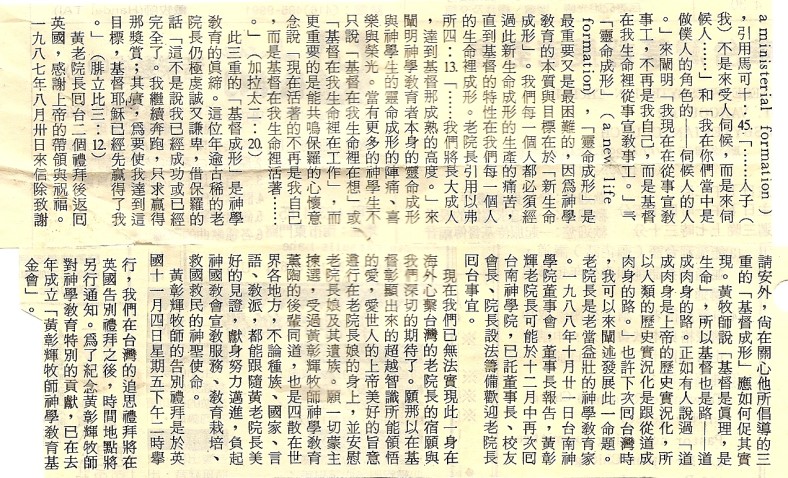 a ministerial formation）
，引用馬可十：45.「……人子（
我）不是來受人伺候，而是來伺
候人……」和「我在你們當中是
做僕人的角色的——伺候人的人
。」來闡明「我現在在從事宣敎
事工，不再是我自己，而是基督
在我生命裡從事宣敎事工。」㈢
「靈命成形」（a new life
formation），「靈命成形」是
最重要又是最困難的，因爲神學
敎育的本質與目標在於「新生命
成形」。我們每一個人都必須經
過此新生命成形的生產的痛苦，
直到基督的特性在我們每一個人
的生命裡成形。老院長引用以弗
所四：13.「……我們將長大成人
，達到基督那成熟的高度。」來
闡明神學敎育者本身的靈命成形
與神學生的靈命成形的陣痛、喜
樂與榮光。當有更多的神學生不
只說「基督在我生命裡在想」或
「基督在我生命裡在工作」，而
更重要的是能共鳴保羅的心懷意
念說「現在活著的不再是我自己
，而是基督在我生命裡活著……
。」（加拉太二：20）
此三重的「基督成形」是神學
敎育的眞締。這位年逾古稀的老
院長仍極虔誠又謙卑，借保羅的
話「這不是說我已經成功或已經
完全了。我繼續奔跑，只求贏得
那獎賞；其實，爲要使我達到這
目標，基督耶穌已經先贏得了我
。」（腓立比三：12）
黃老院長囘台二個禮拜後返囘
英國，感謝上帝的帶領與祝福。
一九八七年八月卅日來信除致謝
請安外，尙在關心他所倡導的三
重的「基督成形」應如何促其實
現。黃牧師說「基督是眞理，是
生命」，所以基督也是路——道
成肉身的路。正如有人說過「道
成肉身是上帝的歷史實況化，所
以人類的歷史實況化是跟從道成
肉身的路。」也許下次囘台灣時
，我可以來闡述發展此一命題。
老院長是老當益壯的神學敎育家
。一九八八年十月卅一日台南神
學院董事會，董事長報告，黃彰
輝老院長可能於十二月中再次囘
台南神學院，已託董事長、校友
會長、院長設法籌備歡迎老院長
囘台事宜。
現在我們已無法實現此一身在
海外心繫台灣的老院長的宿願與
我們深切的期待了。願那以在基
督彰顯出來的超越智識所能領悟
的愛，愛世人的上帝美好的旨意
遵行在老院長娘的身上，並安慰
老院長娘及其遺族。願一切蒙主
揀選，受過黃彰輝牧師神學敎育
薰陶的後輩同道，也是四散在世
界各地方，不論種族、國家、言
語、敎派，都能跟隨黃老院長美
好的見證，獻身努力邁進，負起
神國敎會宣敎服務、敎育栽培、
救國救民的神聖使命。
黃彰輝牧師的告別禮拜是於英
國十一月四日星期五下午二時舉
行，我們在台灣的追思禮拜將在
英國告別禮拜之後，時間地點將
另行通知。爲了紀念黃彰輝牧師
對神學敎育特別的貢獻，已在去
年成立「黃彰輝牧師神學敎育基
金會」。